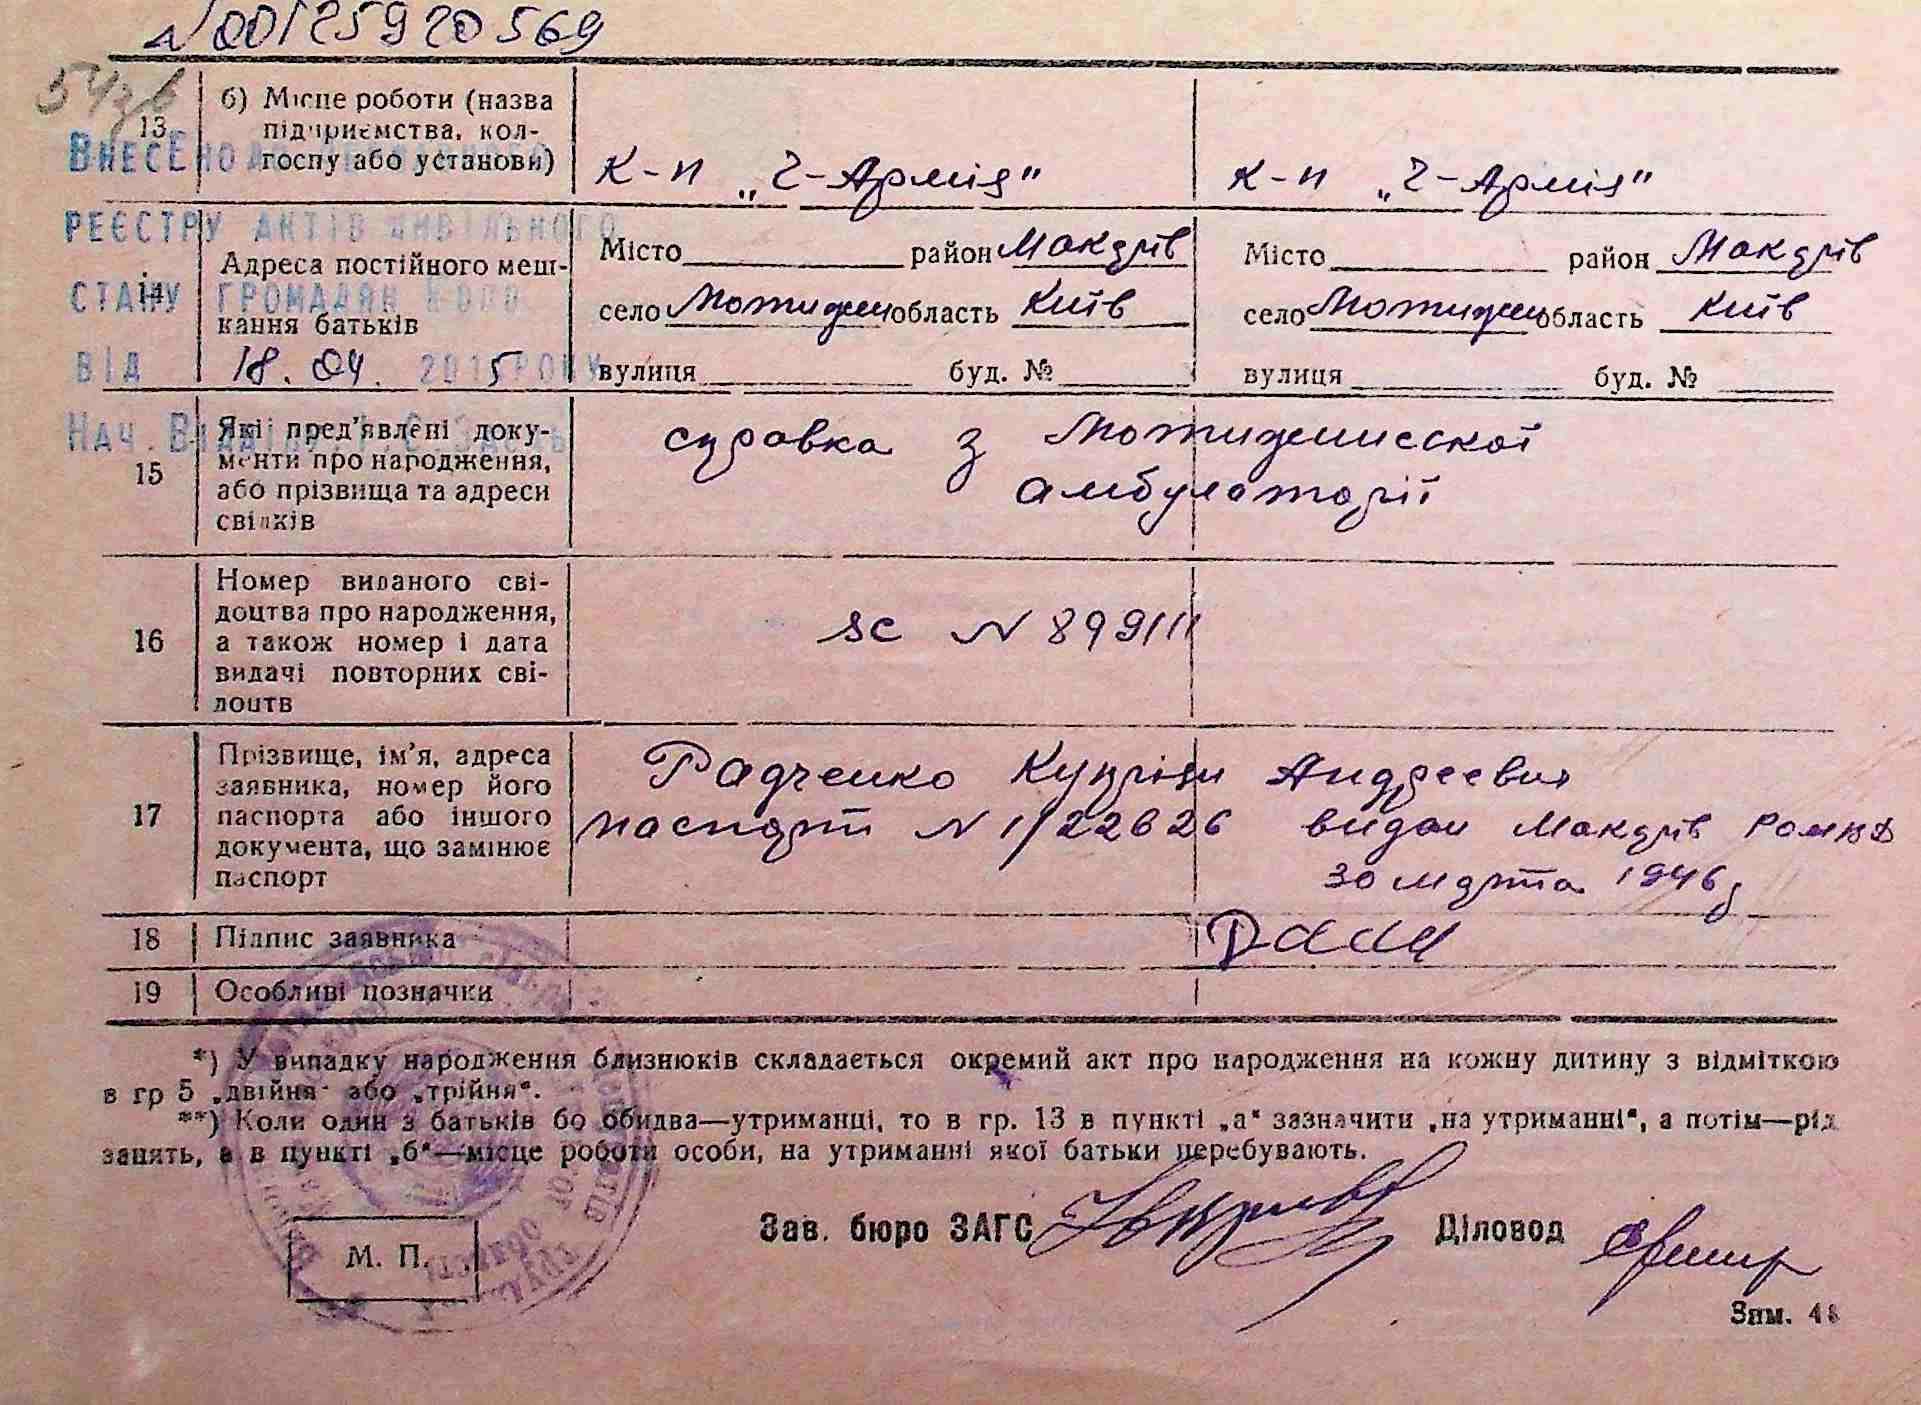 N 00125920569
13
б) Місце роботи (назва
підприємства, кол-
госпу або установи)
К-п „Ч-Армія" К-п „Ч-Армія"
Внесено до
реєстру актів цивільного
стану громадян
від 18.04. 2015 року
Нач. Відділу
14
Адреса постійного меш-
кання батьків
Місто район Макарів Місто район Макарів
село Мотижин область Київ село Мотижин область Київ
вулиця буд. № вулиця буд. №
15
Які пред'явлені доку-
менти про народження,
або прізвища та адреси
свідків
справка з Мотижинскої
амбулаторії
16
Номер виданого сві-
доцтва про народження,
а також номер і дата
видачі повторних сві-
доцтв
N 899111
17
Прізвище, ім'я, адреса
заявника, номер його
паспорта або іншого
документа, що замінює
паспорт
Радченко Купріян Андреевич
паспорт N 1/22626 видан Макарів РОМВД
30 марта 1946 г
18 Підпис заявника
19 Особливі позначки
*) У випадку народження близнюків складається окремий акт про народження на кожну дитину з відміткою
в гр 5 „двійня" або „трійня".
**) Коли один з батьків бо обидва—утриманці, то в гр. 13 в пункті „а" зазначити „на утриманні", а потім—рід
занять, а в пункті „б"—місце роботи особи, на утриманні якої батьки перебувають.
М. П.
Зав. бюро ЗАГС Діловод
Зам. 48